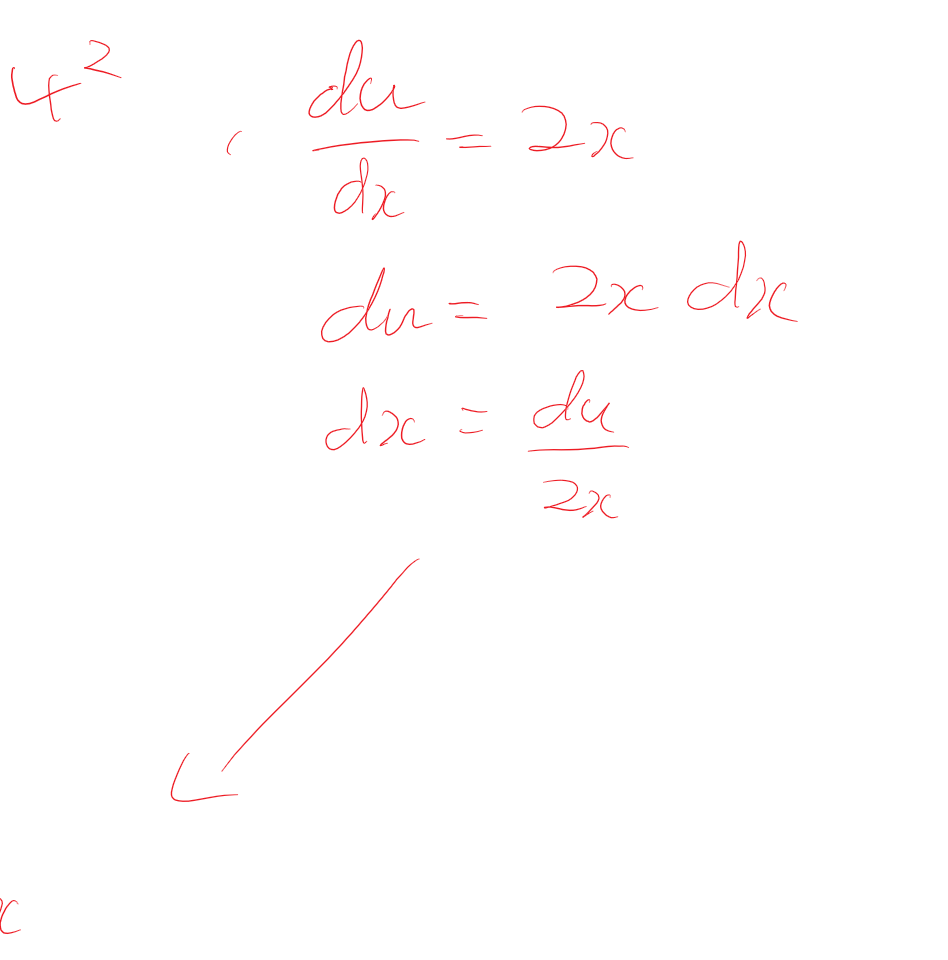 4² , du/dx = 2x
du = 2x dx
dx = du/2x
x